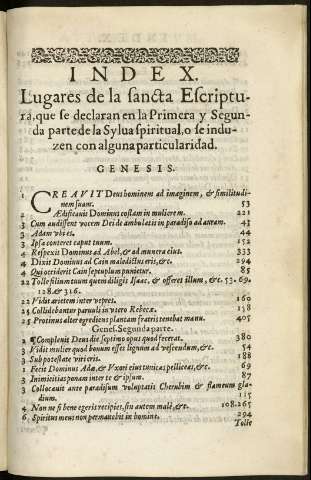 INDEX.
Lugares de la sancta Escriptu-
ra, que se declaran en la Primera y Segun-
da parte de la Sylua spiritual, o se indu-
zen con alguna particularidad.
GENESIS.
1 CREAVIT Deus hominem ad imaginem, & similitudi-
nem suam. 53
2 Ædificauit Dominus costam in mulierem. 221
3 Cum audissent vocem Dei de ambulatis in paradiso ad auram. 43
3 Adam vbi es. 44
3 Ipsa conteret caput tuum. 152
4 Respexit Dominus ad Abel, & ad munera eius. 333
4 Dixit Dominus ad Cain maledictus eris, &c. 294
4 Qui occiderit Cain septuplum punietur. 85
22 Tolle filium tuum quem diligis Isaac, & offeret illum, &c. 53. 69.
128. & 316.
22 Vidit arietem inter vepres. 160
25 Collidebantur paruuli in vtero Rebecæ. 158
25 Protinus alter egrediens plantam fratris tenebat manu. 405
Genes. Segunda parte.
2 ¶Compleuit Deus die septimo opus quod fecerat. 380
3 Vidit mulier quod bonum esset lignum ad vescendum, &c. 54
3 Sub potestate viri eris. 188
1 Fecit Dominus Adæ, & Vxori eius tunicas pelliceas, &c. 69
3 Inimicitias ponam inter te & ipsam. 87
3 Collocauit ante paradisum voluptatis Cherubim & flameum gla-
dium. 115
4 Non ne si bene egeris recipies, sin autem malè, &c. 108. 265
6 Spiritus meus non permanebit in homine. 294
Tolle